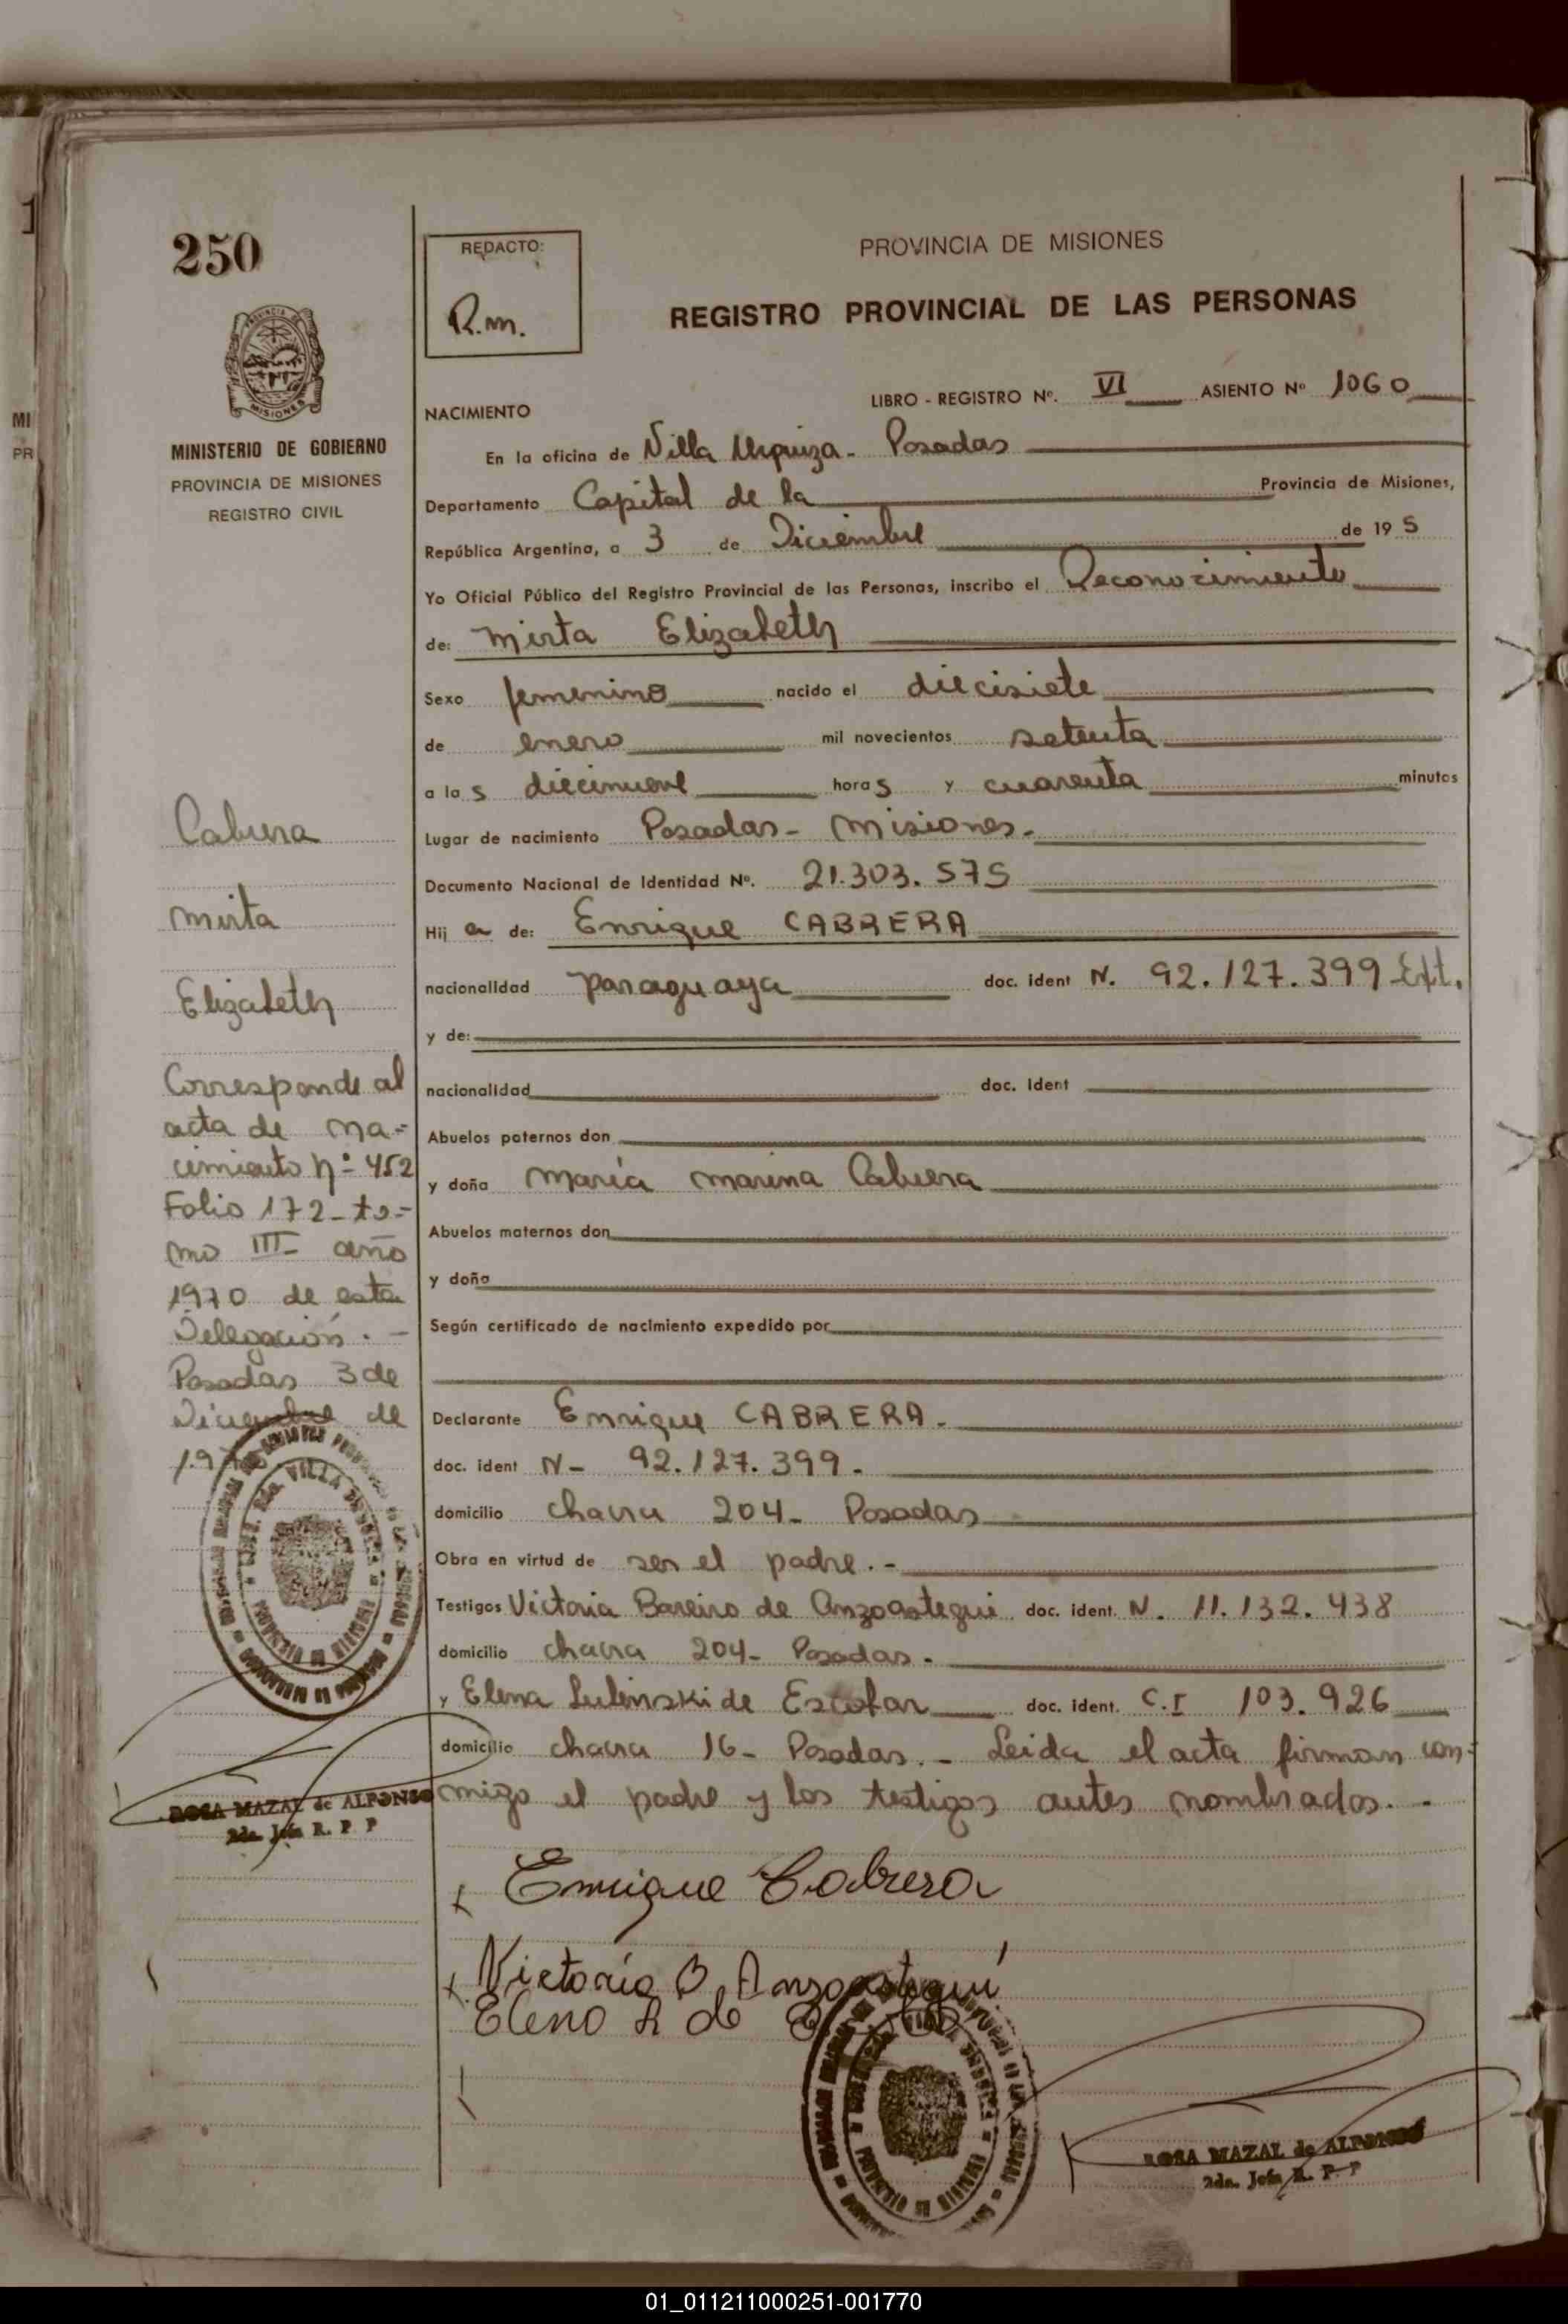 250
PROVINCIA DE MISIONES
MINISTERIO DE GOBIERNO
PROVINCIA DE MISIONES
REGISTRO CIVIL
REDACTO:
R.m.
PROVINCIA DE MISIONES
REGISTRO PROVINCIAL DE LAS PERSONAS
LIBRO - REGISTRO Nº. VI ASIENTO Nº 1060
NACIMIENTO
En la oficina de Villa Urquiza - Posadas
Departamento Capital de la Provincia de Misiones,
República Argentina, a 3 de Diciembre de 19 5
Yo Oficial Público del Registro Provincial de las Personas, inscribo el Reconocimiento
de: Mirta Elizabeth
Sexo femenino nacido el diecisiete
de enero mil novecientos setenta
a la s diecinueve hora s y cuarenta minutos
Lugar de nacimiento Posadas - Misiones.
Documento Nacional de Identidad Nº. 21.303.575
Hij a de: Enrique CABRERA
nacionalidad paraguaya doc. ident N. 92.127.399 Ext.
y de:
nacionalidad doc. ident
Abuelos paternos don
y doña María Marina Cabrera
Abuelos maternos don
y doña
Según certificado de nacimiento expedido por
Declarante Enrique CABRERA.
doc. ident N- 92.127.399.
domicilio chacra 204- Posadas
Obra en virtud de ser el padre.-
Testigos Victoria Bareiro de Anzoategui doc. ident. N. 11.132.438
domicilio chacra 204- Posadas.
y Elena Lubinski de Escobar doc. ident. C.I 103.926
domicilio chacra 16- Posadas.- Leida el acta firman con-
migo el padre y los testigos antes nombrados.-
Enrique Cabrera
Victoria B Anzoategui
Elena L de
ROSA MAZAL de ALFONSO
2da. Jefa R. P. P
Cabrera
Mirta
Elizabeth
Corresponde al
acta de na-
cimiento Nº 452
Folio 172- to-
mo III- año
1970 de esta
Delegación.-
Posadas 3 de
Diciembre de
ROSA MAZAL de ALFONSO
2da. Jefa R. P P
01_011211000251-001770